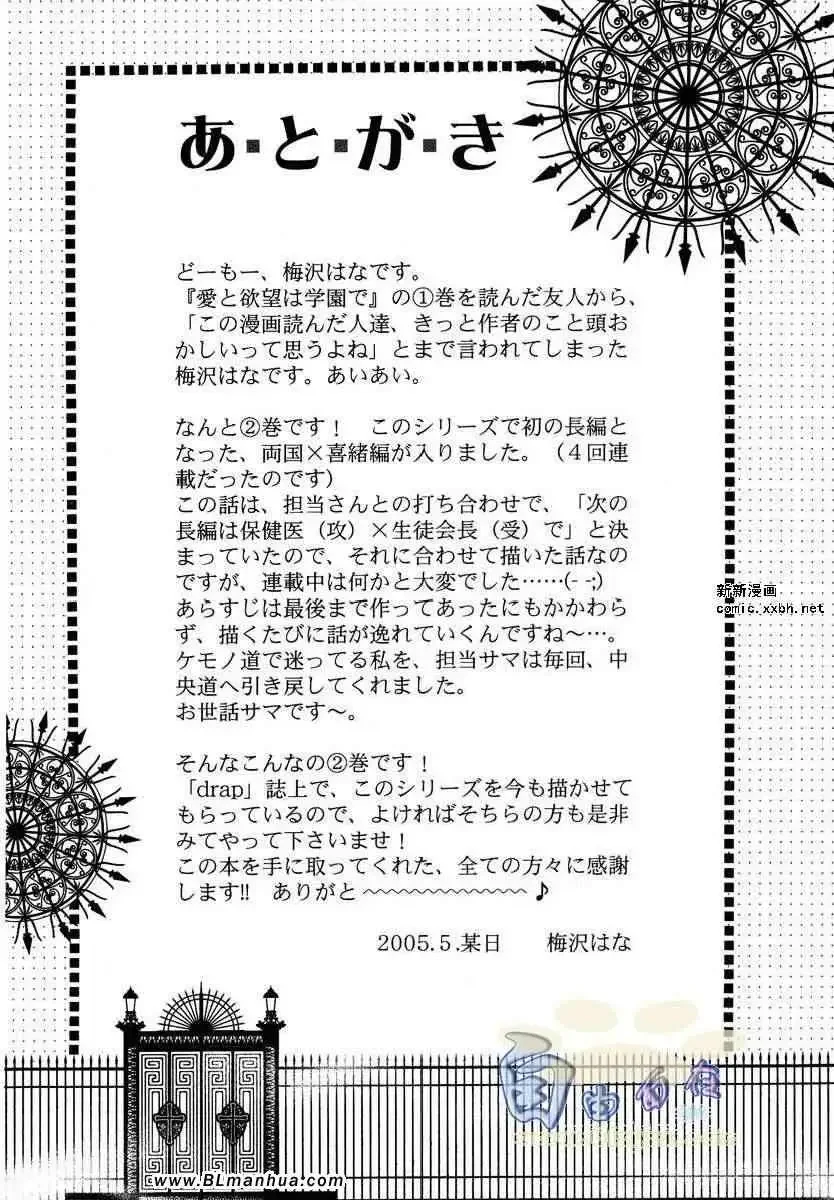 あ・と・が・き
どーもー、梅沢はなです。
『愛と欲望は学園で』の①巻を読んだ友人から、
「この漫画読んだ人達、きっと作者のこと頭お
かしいって思うよね」とまで言われてしまった
梅沢はなです。あいあい。
なんと②巻です！　このシリーズで初の長編と
なった、両国×喜緒編が入りました。（４回連
載だったのです）
この話は、担当さんとの打ち合わせで、「次の
長編は保健医（攻）×生徒会長（受）で」と決
まっていたので、それに合わせて描いた話なの
ですが、連載中は何かと大変でした……(- -;)
あらすじは最後まで作ってあったにもかかわら
ず、描くたびに話が逸れていくんですね～…。
ケモノ道で迷ってる私を、担当サマは毎回、中
央道へ引き戻してくれました。
お世話サマです～。
そんなこんなの②巻です！
「drap」誌上で、このシリーズを今も描かせて
もらっているので、よければそちらの方も是非
みてやって下さいませ！
この本を手に取ってくれた、全ての方々に感謝
します!!　ありがと～～～～～～～～～～～♪
2005.5.某日　　梅沢はな
新新漫画
comic.xxbh.net
自由自在
www.BLmanhua.com